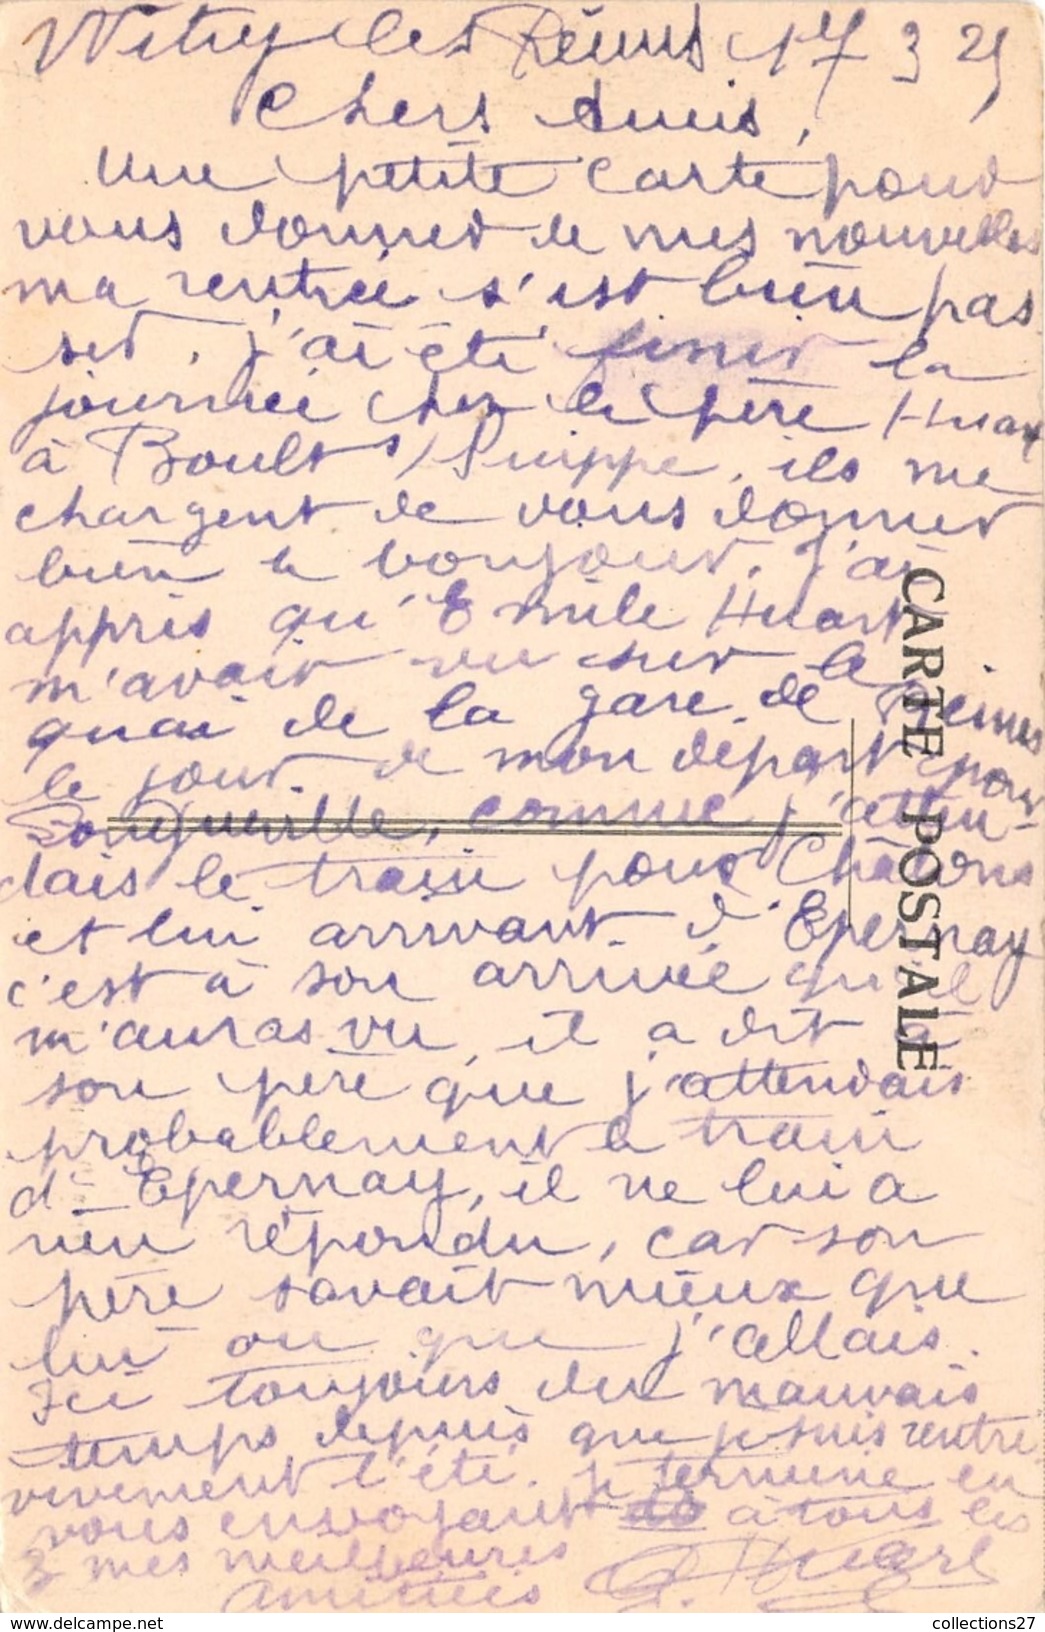 Witry les Reims 17 3 25
Chers Amis,
Une petite carte pour
vous donner de mes nouvelles
ma rentrée s'est bien pas
ser, j'ai été finir la
journée chez le père Huart
à Boult s/ Suippe, ils me
chargent de vous donner
bien le bonjour, j'ai
appris qu'Emile Huart
m'avait vu sur le
quai de la gare de Reims
le jour de mon départ pour
comme j'atten-
dais le train pour Châlons
et lui arrivant d'Epernay
c'est à son arrivée qu'il
m'auras vu, il a dit à
son père que j'attendais
probablement le train
d'Epernay, il ne lui a
rien répondu, car son
père savait mieux que
lui ou que j'allais.
Ici toujours du mauvais
temps depuis que je suis rentré
vivement l'été. je termine en
vous envoyant à tous les
3 mes meilleures
amitiés
Huart
CARTE POSTALE
collections27